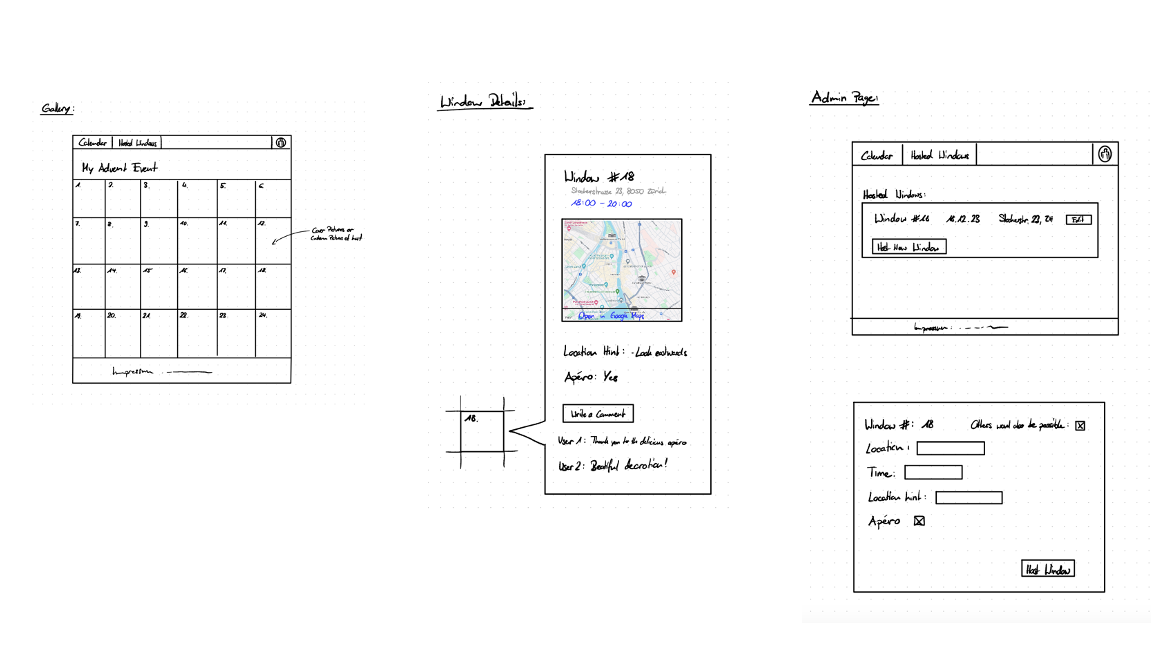 Gallery:
Calendar
Hosted Windows
My Advent Event
1. 2. 3. 4. 5. 6.
7. 8. 9. 10. 11. 12.
13. 14. 15. 16. 17. 18.
19. 20. 21. 22. 23. 24.
Cover Pictures or
Custom Pictures of host
Impressum
Window Details:
Window #18
8050 Zürich
18:00 - 20:00
Open in Google Maps
Location Hint: - Look eastwards
Apéro: Yes
Write a Comment
User 1: Thank you for the delicious apéro
User 2: Beatiful decration!
18.
Admin Page:
Calendar
Hosted Windows
Hosted Windows:
Window #16 18.12.23 Edit
Host New Window
Impressum:
Window #: 18
Others would also be possible:
Location:
Time:
Location hint:
Apéro
Host Window